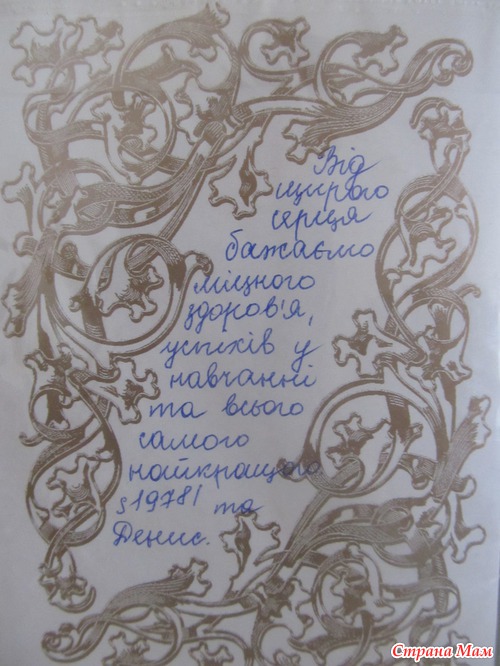 Від
щирого
серця
бажаємо
міцного
здоров'я,
успіхів у
навчанні
та всього
самого
найкращого
s1978l та
Денис.
Страна Мам